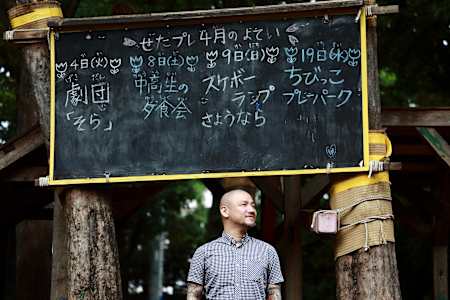 ぜたプレ4月のよてい
4日(火)
げきだん
劇団
「そら」
8日(土)
中高生の
夕食会
9日(日)
スケボー
ランプ
さようなら
19日(水)
ちびっこ
プレーパーク